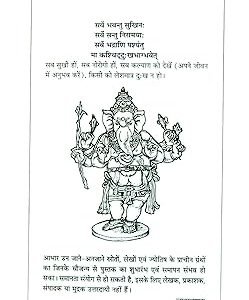 सर्वे भवन्तु सुखिनः
सर्वे सन्तु निरामयः
सर्वे भद्राणि पश्यंतु
मा कश्चिद्दुःखभाग्भवेत्
सब सुखी हों, सब नीरोगी हों, सब कल्याण को देखें (अपने जीवन
में अनुभव करें), किसी को लेशमात्र दुःख न हो।
आभार उन जाने-अनजाने स्रोतों, लेखों एवं ज्योतिष के प्राचीन ग्रंथों
का जिनके सौजन्य से पुस्तक का शुभारंभ एवं समापन संभव हो
सका। समानता संयोग से हो सकती है, इसके लिए लेखक, प्रकाशक,
संपादक या मुद्रक उत्तरदायी नहीं हैं।